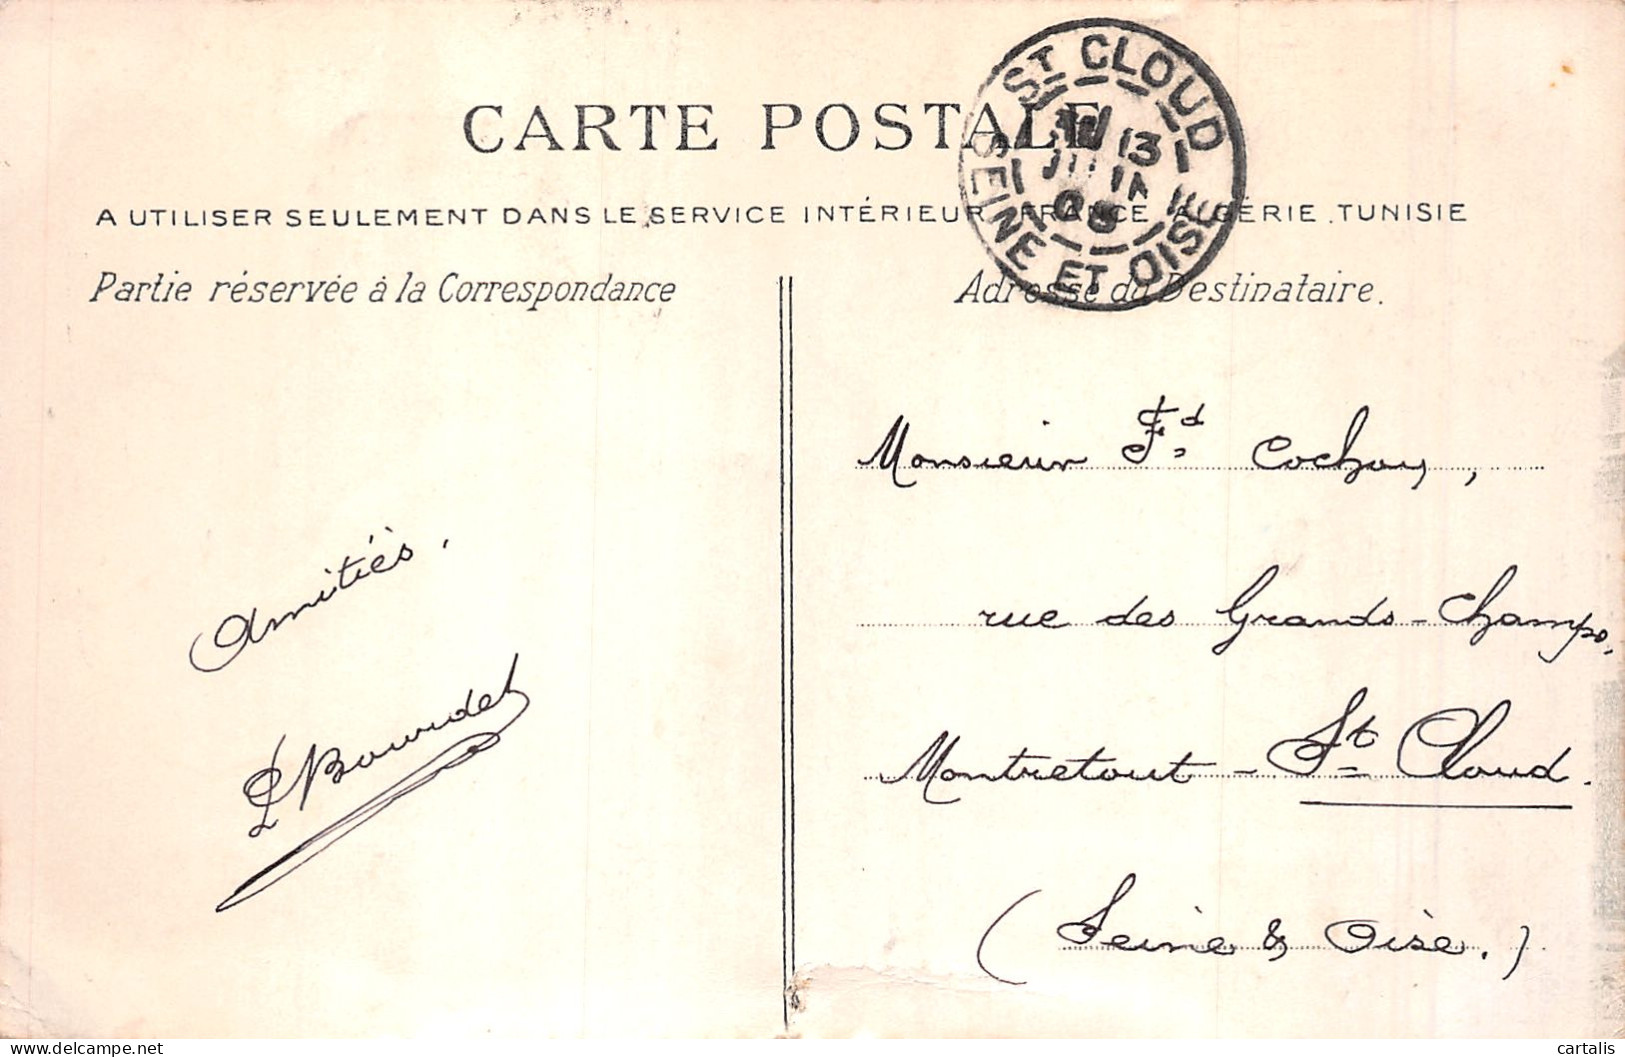 CARTE POSTALE
A UTILISER SEULEMENT DANS LE SERVICE INTÉRIEUR, FRANCE, ALGÉRIE, TUNISIE
Partie réservée à la Correspondance
Adresse du Destinataire.
ST CLOUD
13
SEINE ET OISE
Amitiés.
L Bourdel
Monsieur Fd Cochoy,
rue des Grands-Champs,
Montretout - St Cloud.
(Seine & Oise.)
delcampe.net
cartalis